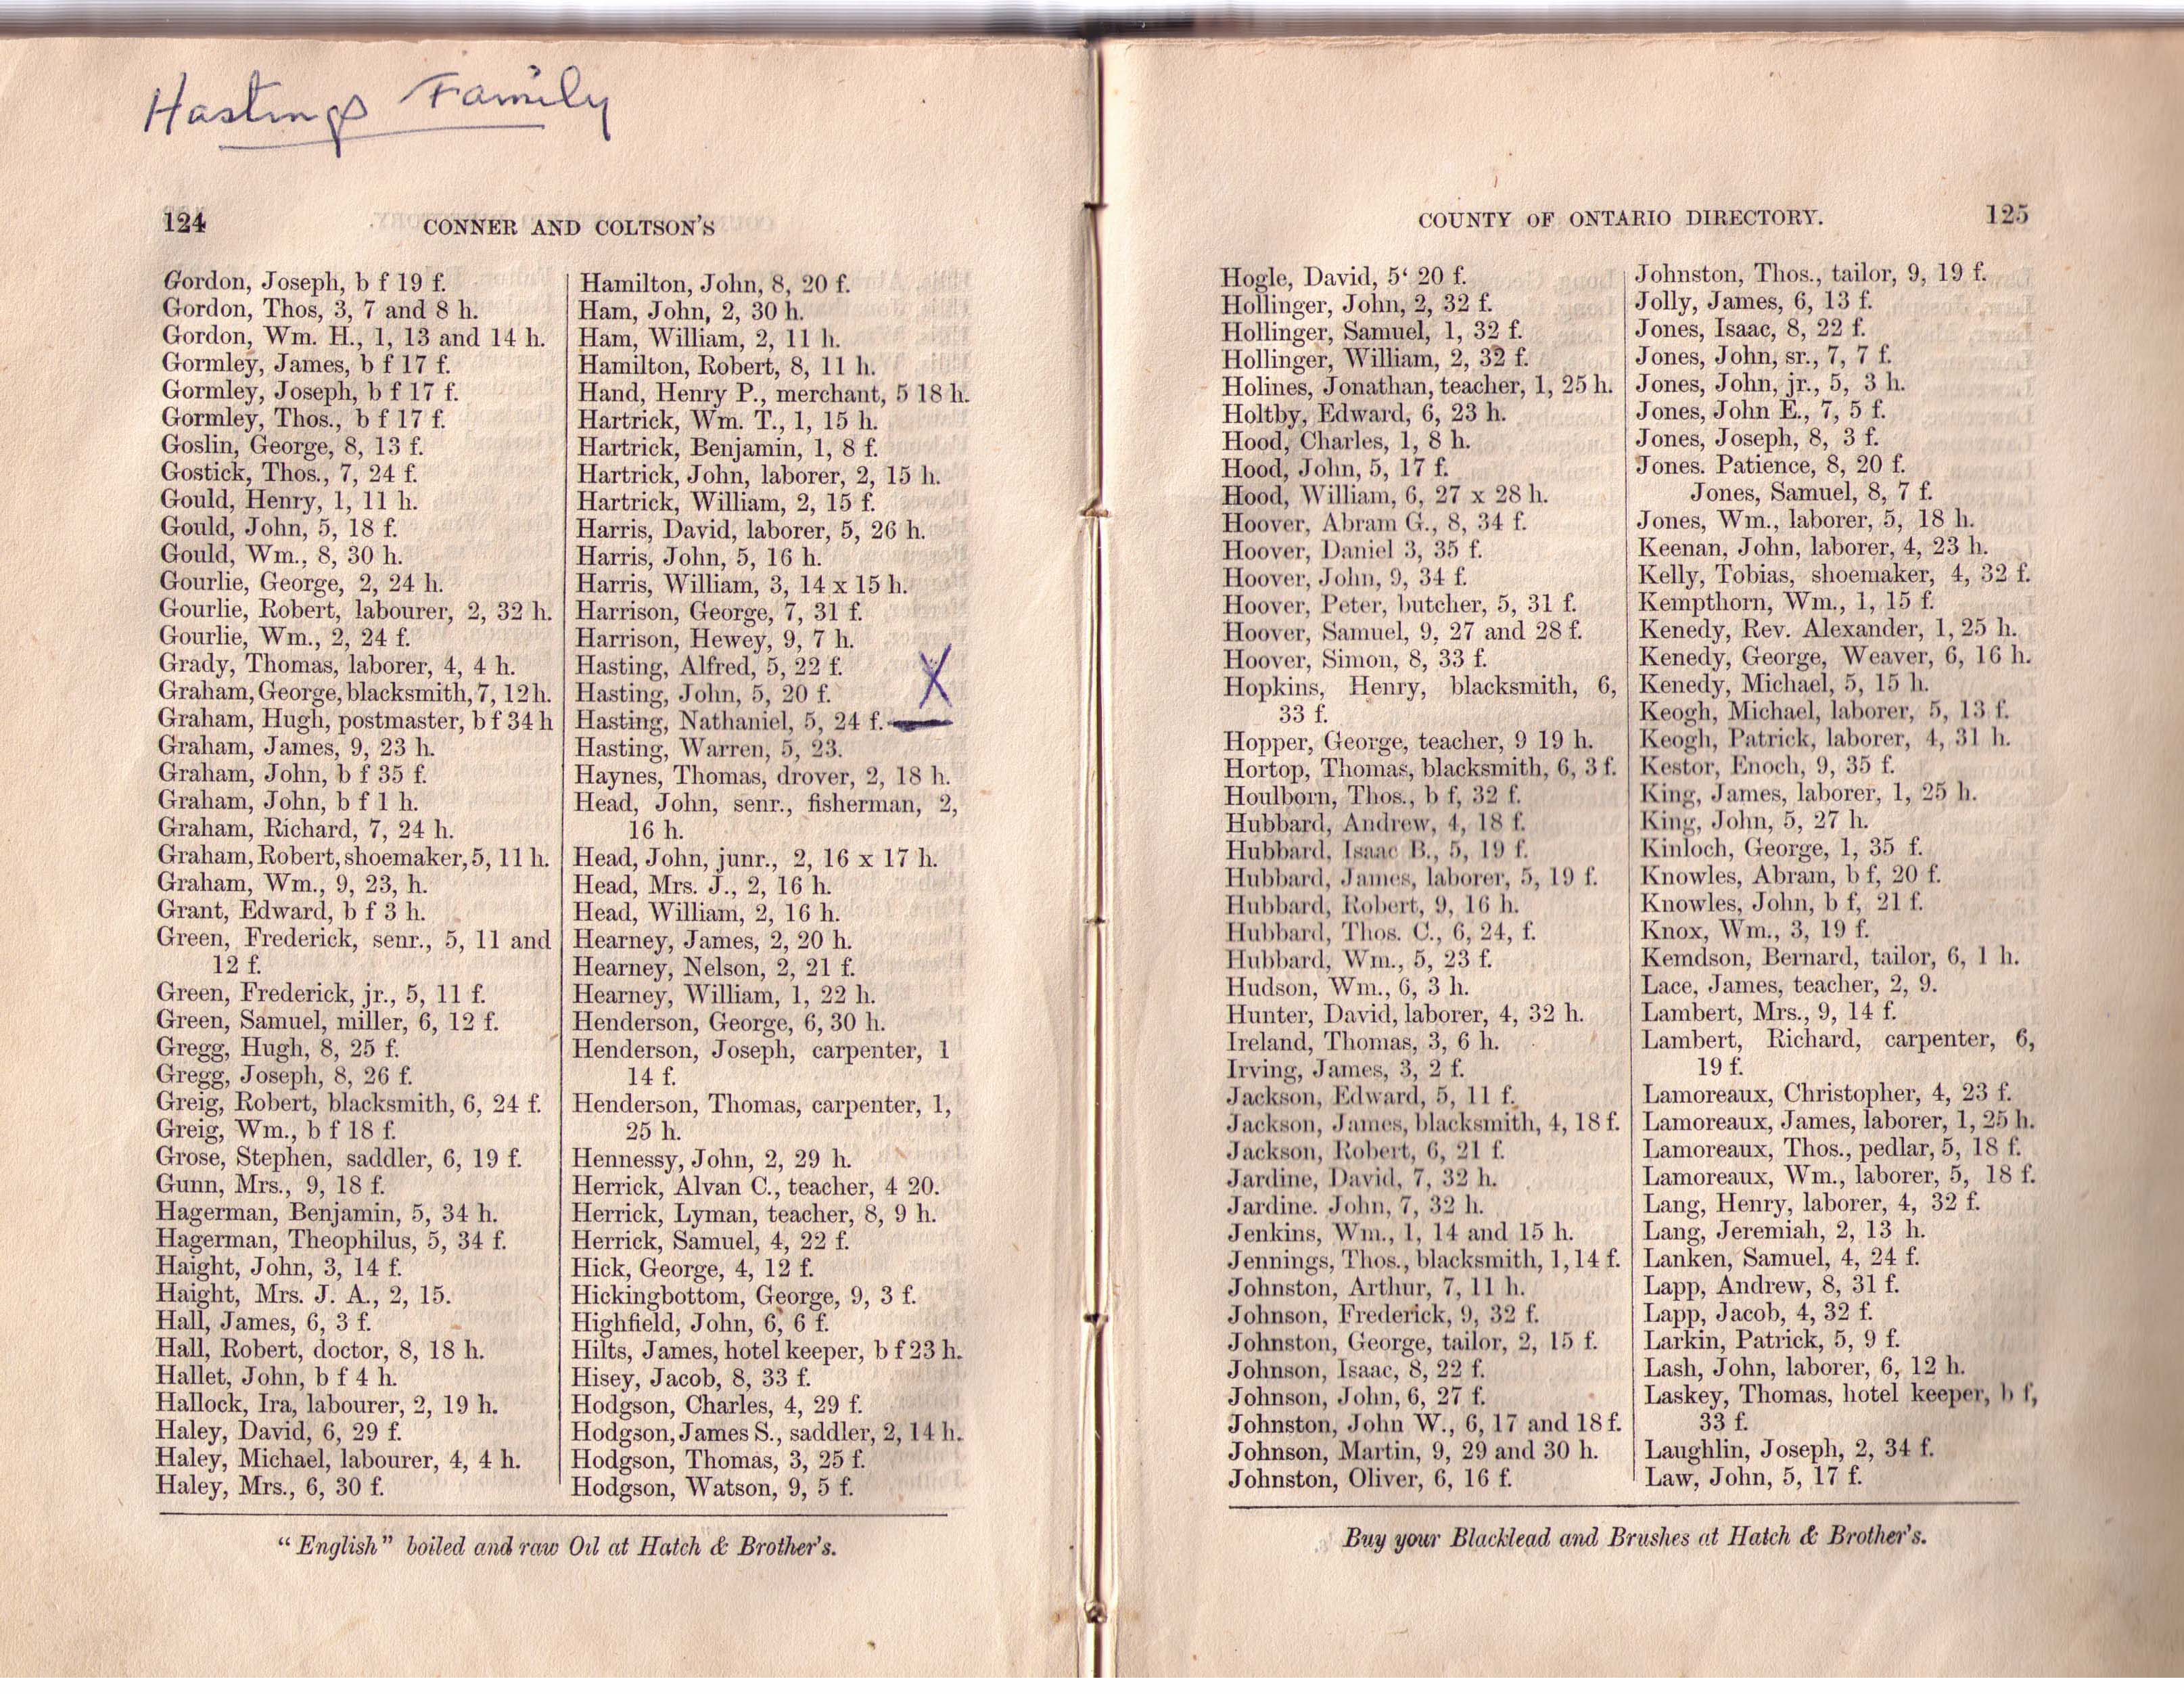 Hastings Family
124
CONNER AND COLTSON'S
Gordon, Joseph, b f 19 f.
Gordon, Thos, 3, 7 and 8 h.
Gordon, Wm. H., 1, 13 and 14 h.
Gormley, James, b f 17 f.
Gormley, Joseph, b f 17 f.
Gormley, Thos., b f 17 f.
Goslin, George, 8, 13 f.
Gostick, Thos., 7, 24 f.
Gould, Henry, 1, 11 h.
Gould, John, 5, 18 f.
Gould, Wm., 8, 30 h.
Gourlie, George, 2, 24 h.
Gourlie, Robert, labourer, 2, 32 h.
Gourlie, Wm., 2, 24 f.
Grady, Thomas, laborer, 4, 4 h.
Graham, George, blacksmith, 7, 12 h.
Graham, Hugh, postmaster, b f 34 h
Graham, James, 9, 23 h.
Graham, John, b f 35 f.
Graham, John, b f 1 h.
Graham, Richard, 7, 24 h.
Graham, Robert, shoemaker, 5, 11 h.
Graham, Wm., 9, 23, h.
Grant, Edward, b f 3 h.
Green, Frederick, senr., 5, 11 and
12 f.
Green, Frederick, jr., 5, 11 f.
Green, Samuel, miller, 6, 12 f.
Gregg, Hugh, 8, 25 f.
Gregg, Joseph, 8, 26 f.
Greig, Robert, blacksmith, 6, 24 f.
Greig, Wm., b f 18 f.
Grose, Stephen, saddler, 6, 19 f.
Gunn, Mrs., 9, 18 f.
Hagerman, Benjamin, 5, 34 h.
Hagerman, Theophilus, 5, 34 f.
Haight, John, 3, 14 f.
Haight, Mrs. J. A., 2, 15.
Hall, James, 6, 3 f.
Hall, Robert, doctor, 8, 18 h.
Hallet, John, b f 4 h.
Hallock, Ira, labourer, 2, 19 h.
Haley, David, 6, 29 f.
Haley, Michael, labourer, 4, 4 h.
Haley, Mrs., 6, 30 f.
Hamilton, John, 8, 20 f.
Ham, John, 2, 30 h.
Ham, William, 2, 11 h.
Hamilton, Robert, 8, 11 h.
Hand, Henry P., merchant, 5 18 h.
Hartrick, Wm. T., 1, 15 h.
Hartrick, Benjamin, 1, 8 f.
Hartrick, John, laborer, 2, 15 h.
Hartrick, William, 2, 15 f.
Harris, David, laborer, 5, 26 h.
Harris, John, 5, 16 h.
Harris, William, 3, 14 x 15 h.
Harrison, George, 7, 31 f.
Harrison, Hewey, 9, 7 h.
Hasting, Alfred, 5, 22 f.
Hasting, John, 5, 20 f. X
Hasting, Nathaniel, 5, 24 f.
Hasting, Warren, 5, 23.
Haynes, Thomas, drover, 2, 18 h.
Head, John, senr., fisherman, 2,
16 h.
Head, John, junr., 2, 16 x 17 h.
Head, Mrs. J., 2, 16 h.
Head, William, 2, 16 h.
Hearney, James, 2, 20 h.
Hearney, Nelson, 2, 21 f.
Hearney, William, 1, 22 h.
Henderson, George, 6, 30 h.
Henderson, Joseph, carpenter, 1
14 f.
Henderson, Thomas, carpenter, 1,
25 h.
Hennessy, John, 2, 29 h.
Herrick, Alvan C., teacher, 4 20.
Herrick, Lyman, teacher, 8, 9 h.
Herrick, Samuel, 4, 22 f.
Hick, George, 4, 12 f.
Hickingbottom, George, 9, 3 f.
Highfield, John, 6, 6 f.
Hilts, James, hotel keeper, b f 23 h.
Hisey, Jacob, 8, 33 f.
Hodgson, Charles, 4, 29 f.
Hodgson, James S., saddler, 2, 14 h.
Hodgson, Thomas, 3, 25 f.
Hodgson, Watson, 9, 5 f.
"English" boiled and raw Oil at Hatch & Brother's.
COUNTY OF ONTARIO DIRECTORY.
125
Hogle, David, 5‘ 20 f.
Hollinger, John, 2, 32 f.
Hollinger, Samuel, 1, 32 f.
Hollinger, William, 2, 32 f.
Holines, Jonathan, teacher, 1, 25 h.
Holtby, Edward, 6, 23 h.
Hood, Charles, 1, 8 h.
Hood, John, 5, 17 f.
Hood, William, 6, 27 x 28 h.
Hoover, Abram G., 8, 34 f.
Hoover, Daniel 3, 35 f.
Hoover, John, 9, 34 f.
Hoover, Peter, butcher, 5, 31 f.
Hoover, Samuel, 9, 27 and 28 f.
Hoover, Simon, 8, 33 f.
Hopkins, Henry, blacksmith, 6,
33 f.
Hopper, George, teacher, 9 19 h.
Hortop, Thomas, blacksmith, 6, 3 f.
Houlborn, Thos., b f, 32 f.
Hubbard, Andrew, 4, 18 f.
Hubbard, Isaac B., 5, 19 f.
Hubbard, James, laborer, 5, 19 f.
Hubbard, Robert, 9, 16 h.
Hubbard, Thos. C., 6, 24, f.
Hubbard, Wm., 5, 23 f.
Hudson, Wm., 6, 3 h.
Hunter, David, laborer, 4, 32 h.
Ireland, Thomas, 3, 6 h.
Irving, James, 3, 2 f.
Jackson, Edward, 5, 11 f.
Jackson, James, blacksmith, 4, 18 f.
Jackson, Robert, 6, 21 f.
Jardine, David, 7, 32 h.
Jardine. John, 7, 32 h.
Jenkins, Wm., 1, 14 and 15 h.
Jennings, Thos., blacksmith, 1, 14 f.
Johnston, Arthur, 7, 11 h.
Johnson, Frederick, 9, 32 f.
Johnston, George, tailor, 2, 15 f.
Johnson, Isaac, 8, 22 f.
Johnson, John, 6, 27 f.
Johnston, John W., 6, 17 and 18 f.
Johnson, Martin, 9, 29 and 30 h.
Johnston, Oliver, 6, 16 f.
Johnston, Thos., tailor, 9, 19 f.
Jolly, James, 6, 13 f.
Jones, Isaac, 8, 22 f.
Jones, John, sr., 7, 7 f.
Jones, John, jr., 5, 3 h.
Jones, John E., 7, 5 f.
Jones, Joseph, 8, 3 f.
Jones. Patience, 8, 20 f.
Jones, Samuel, 8, 7 f.
Jones, Wm., laborer, 5, 18 h.
Keenan, John, laborer, 4, 23 h.
Kelly, Tobias, shoemaker, 4, 32 f.
Kempthorn, Wm., 1, 15 f.
Kenedy, Rev. Alexander, 1, 25 h.
Kenedy, George, Weaver, 6, 16 h.
Kenedy, Michael, 5, 15 h.
Keogh, Michael, laborer, 5, 13 f.
Keogh, Patrick, laborer, 4, 31 h.
Kestor, Enoch, 9, 35 f.
King, James, laborer, 1, 25 h.
King, John, 5, 27 h.
Kinloch, George, 1, 35 f.
Knowles, Abram, b f, 20 f.
Knowles, John, b f, 21 f.
Knox, Wm., 3, 19 f.
Kemdson, Bernard, tailor, 6, 1 h.
Lace, James, teacher, 2, 9.
Lambert, Mrs., 9, 14 f.
Lambert, Richard, carpenter, 6,
19 f.
Lamoreaux, Christopher, 4, 23 f.
Lamoreaux, James, laborer, 1, 25 h.
Lamoreaux, Thos., pedlar, 5, 18 f.
Lamoreaux, Wm., laborer, 5, 18 f.
Lang, Henry, laborer, 4, 32 f.
Lang, Jeremiah, 2, 13 h.
Lanken, Samuel, 4, 24 f.
Lapp, Andrew, 8, 31 f.
Lapp, Jacob, 4, 32 f.
Larkin, Patrick, 5, 9 f.
Lash, John, laborer, 6, 12 h.
Laskey, Thomas, hotel keeper, b f,
33 f.
Laughlin, Joseph, 2, 34 f.
Law, John, 5, 17 f.
Buy your Blacklead and Brushes at Hatch & Brother's.